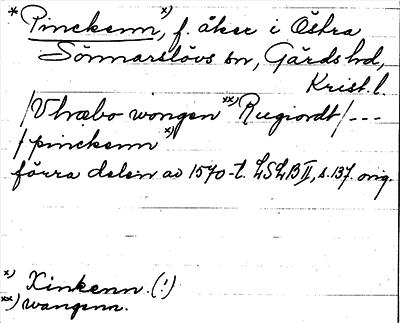 * Pinckenn x), f. åker i Östra
Sönnarslövs sn, Gärds hd,
Krist. l.
/ Vhræbo wongen xx) Rugiordt / ---
/ pinckenn x)
förra delen av 1570-t. LSLB II, s. 137. orig.
x) Xinkenn. (!)
xx) wangenn.